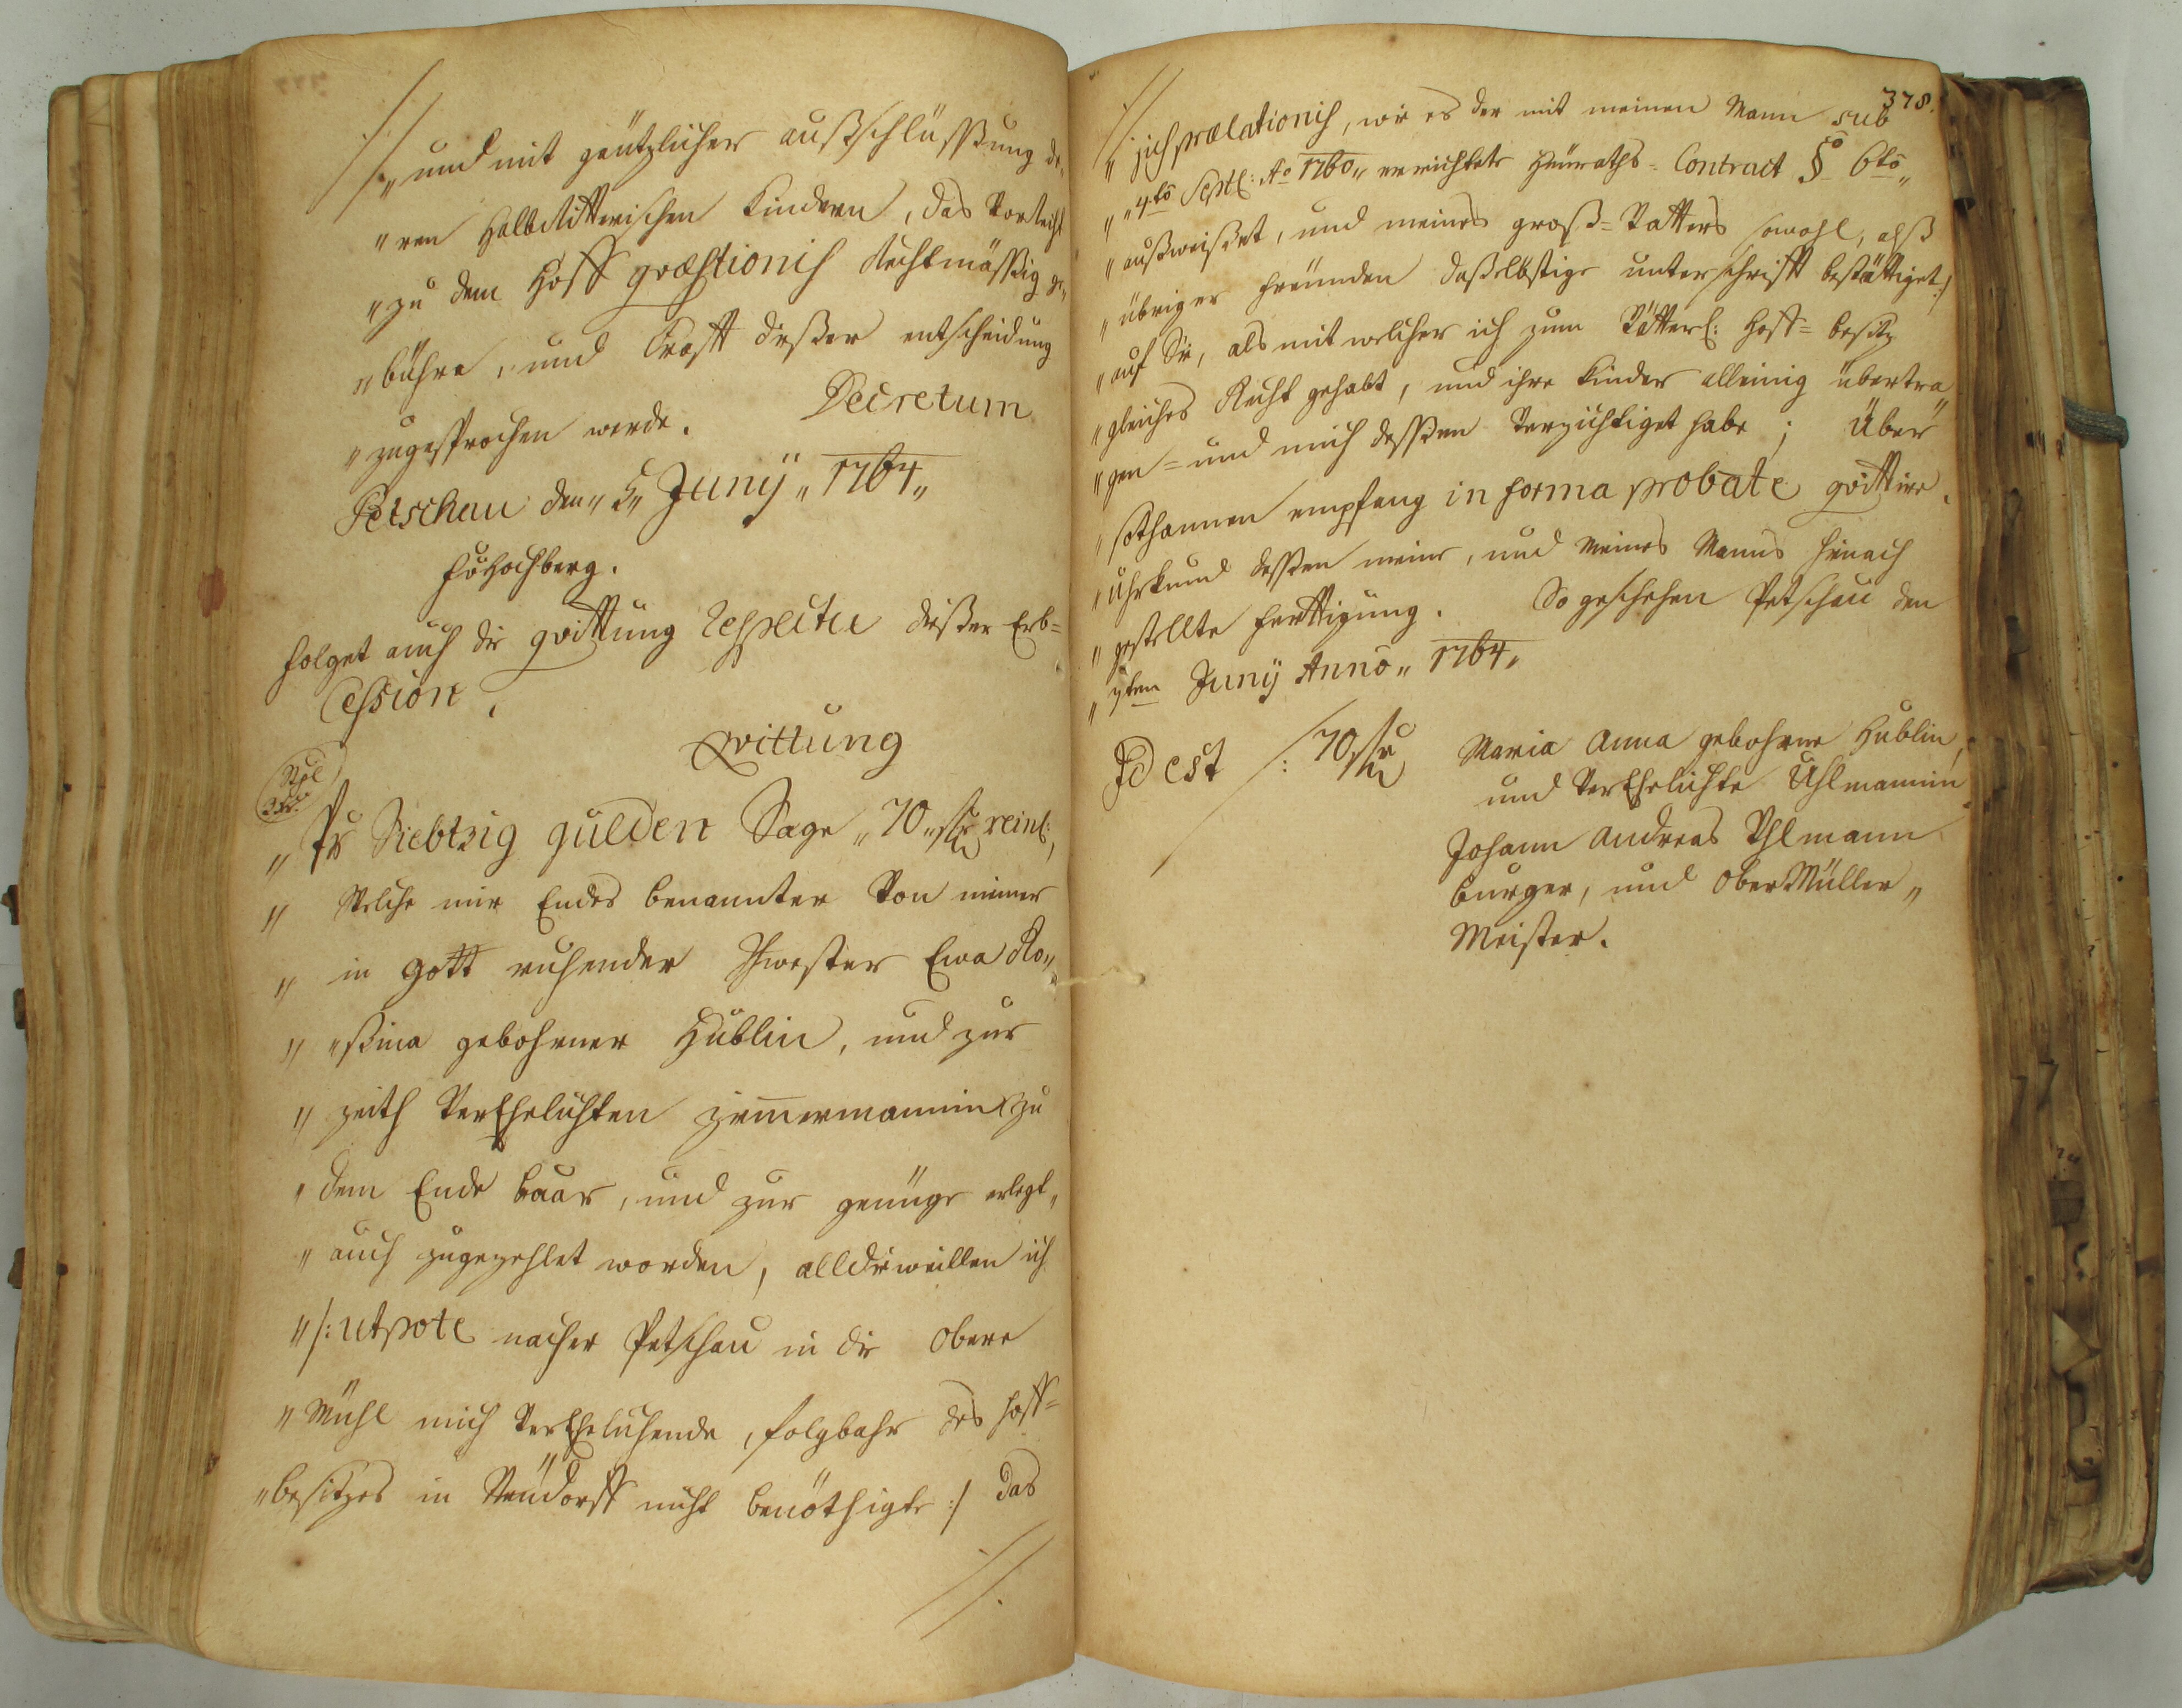 „ und mit gäntzlicher außschlüssung de„
„ren Halbrittterischen Kindern, das Vorrecht
„ zu dem Hoff quæstionis Rechtmässig ge„
„bühre, und Krafft dießer entscheidung
„ zugesprochen werde. Decretum
Petschau den „5„ Junÿ „1764„
Hochberg.
Folget auch die qvittung respectu dießer Erb=
Cession.
Qvittung
Stpl
3 Xr.
„ Pr Siebtzig gulden Sage „70„ fr reinl:
„ Welche mir Endes benannter Von meiner
„ in Gott ruhender Schwester Eva Ro„
„ „sina gebohrner Hüblin, und zur
„ zeith VerEhelichten zimmermannin zu
„ dem Ende baar, und zur genüge erlegt„
„ auch zugezehlet worden, alldieweillen ich
„ /: utpote nacher Petschau in die Obere
„ Mühl mich VerEhelichende, folgbahr des hoff=
„besitzes in Neüdorff nicht benöthigte :/ das
378.
„ jus prælationis, wie es der mit meinen Mann sub
„ „4to Septl: Ao 1760„ errichtete Heüraths=Contract §o 6to„
„ außweißet, und meines groß=Vatters sowohl, alß
„ übriger freünden daßelbstige unterschrifft bestättiget:/
„ auf Sie, als mit welcher ich zum Vätterl: Hoff=besitz
„ gleiches Recht gehabt, und ihre Kinder alleinig übertra„
„ gen= und mich dessen Verzichtiget habe; Über
„ sothannen empfang in forma probate qvittire.
„ Uhrkund dessen meine, und Meines Manns hinach
„ gestellte fertttigung. So geschehen Petschau den
„ 5ten Junÿ Anno „ 1764„
Id est /: 70 fr
Maria Anna gebohrne Hüblin,
und VerEhelichte Uhlmannin
Johann Andreas Uhlmann
burger, und OberMüller„
Meister.